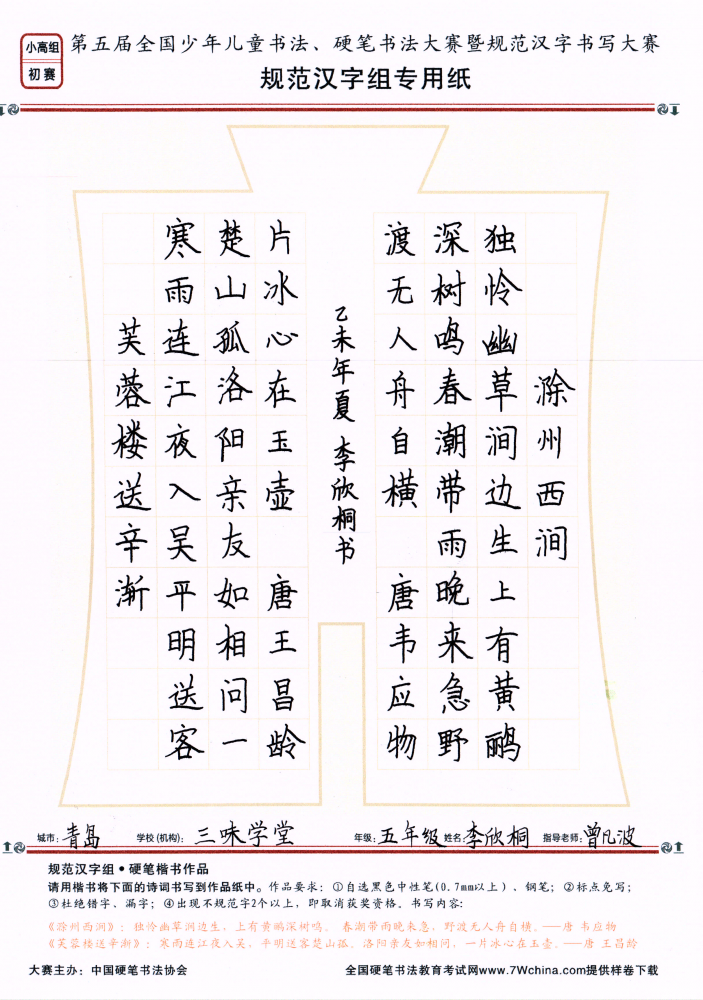 小高组
初赛
第五届全国少年儿童书法、硬笔书法大赛暨规范汉字书写大赛
规范汉字组专用纸
滁州西涧
独怜幽草涧边生上有黄鹂
深树鸣春潮带雨晚来急野
渡无人舟自横 唐韦应物
乙未年夏 李欣桐书
芙蓉楼送辛渐
寒雨连江夜入吴平明送客
楚山孤洛阳亲友如相问一
片冰心在玉壶 唐王昌龄
城市：青岛 学校(机构)：三味学堂 年级：五年级 姓名：李欣桐 指导老师：曾凡波
规范汉字组•硬笔楷书作品
请用楷书将下面的诗词书写到作品纸中。作品要求：①自选黑色中性笔(0.7mm以上)、钢笔；②标点免写；
③杜绝错字、漏字；④出现不规范字2个以上，即取消获奖资格。书写内容：
《滁州西涧》：独怜幽草涧边生，上有黄鹂深树鸣。 春潮带雨晚来急，野渡无人舟自横。——唐 韦应物
《芙蓉楼送辛渐》：寒雨连江夜入吴，平明送客楚山孤。洛阳亲友如相问，一片冰心在玉壶。——唐 王昌龄
大赛主办：中国硬笔书法协会 全国硬笔书法教育考试网www.7Wchina.com提供样卷下载